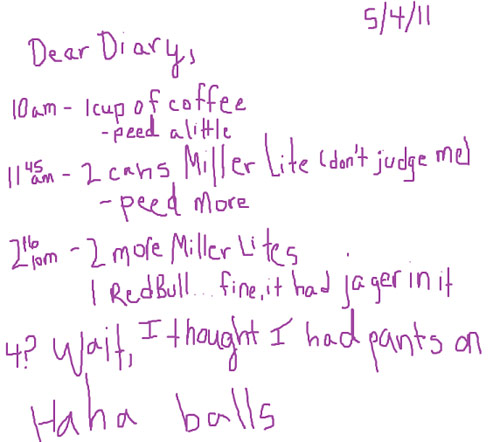 5/4/11
Dear Diary,
10am - 1cup of coffee
-peed a little
11 45 am - 2 cans Miller Lite (don't judge me)
- peed more
2 16 pm - 2 more Miller Lites
1 RedBull... fine, it had jager in it
4? Wait, I thought I had pants on
Haha balls